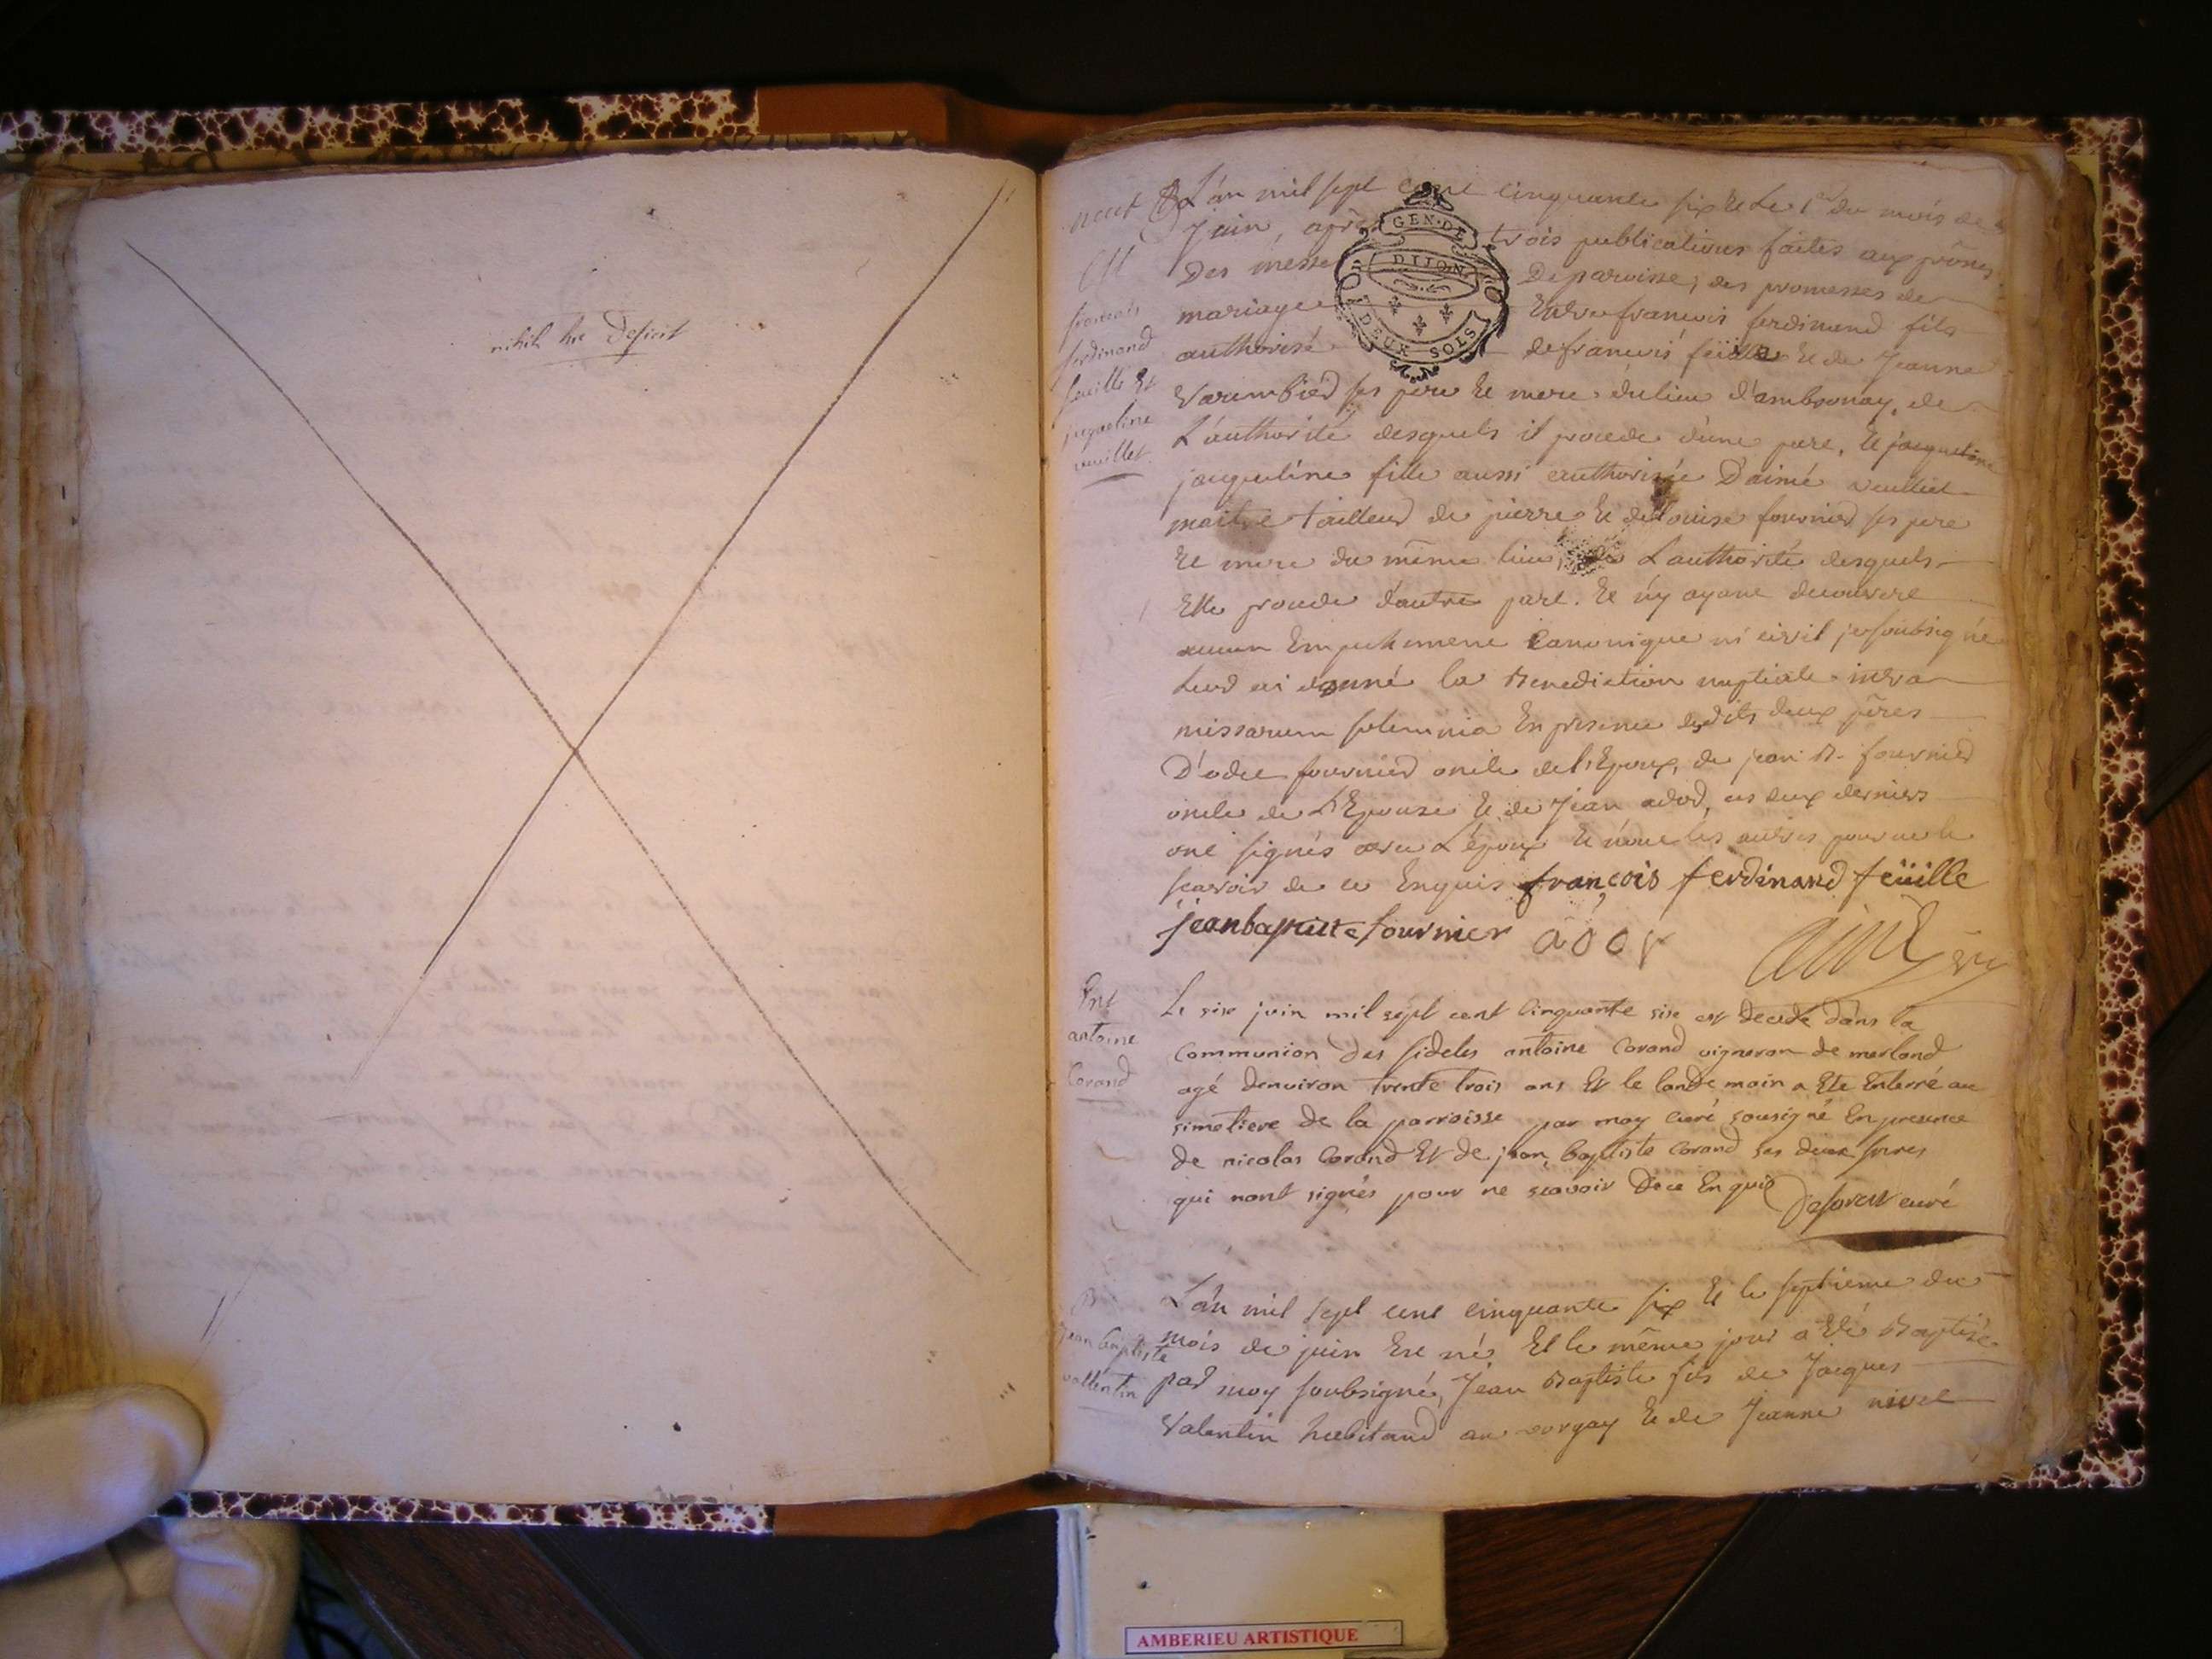 nihil hic deficit
neuf
L'an mil sept cent cinquante six Et Le 1er du mois de
Juin, après trois publications faites aux prônes
Des messes De paroisse, des promesses de
mariage Entre francois ferdinand fils
authorisé de francois feüille Et de Jeanne
Varambied ses pere Et mere du lieu d'ambronay, de
L'authorité desquels il procede d'une part, Et jaqueline
jaqueline fille aussi authorisée D'aimé veulliet
maitre tailleur de pierre Et de Louise fournier ses pere
Et mere du même lieu, de L'authorité desquels
Elle procede d'autre part. Et n'y ayant decouvert
aucun Empechement Canonique ni civil je soubsigné
ai donné la Benediction nuptiale intra
missarum solemnia En presence desdits deux peres
D'odet fournier oncle de l'Epoux, de jean B. fournier
oncle de L'Epouse Et de Jean ador, ces deux derniers
ont signés avec L'époux Et non les autres pour ne le
scavoir de ce Enquis françois ferdinand feüille
jean baptiste fournier ador
francois
ferdinand
feuille Et
jaqueline
veuillet
Ent
antoine
Corand
Le six juin mil sept cent Cinquante six est decedé dans la
Communion des fideles antoine Corand vigneron de merland
agé denviron trente trois ans Et le lande main a Ete Enterré au
simetiere de la parroisse par moy curé sousigné En presence
de nicolas Corand Et de jean baptiste Corand ses deux freres
qui nont signés pour ne scavoir De ce Enquis curé
B
jean baptiste
vallentin
L'an mil sept cent cinquante six Et le septieme du
mois de juin Est né, Et le même jour a été Baptisé
par moy soubsigné, Jean Baptiste fils de Jacques
Valentin habitand au vorgey Et de Jeanne nivet
GEN. DE
DIJON
DEUX SOLS
AMBERIEU ARTISTIQUE